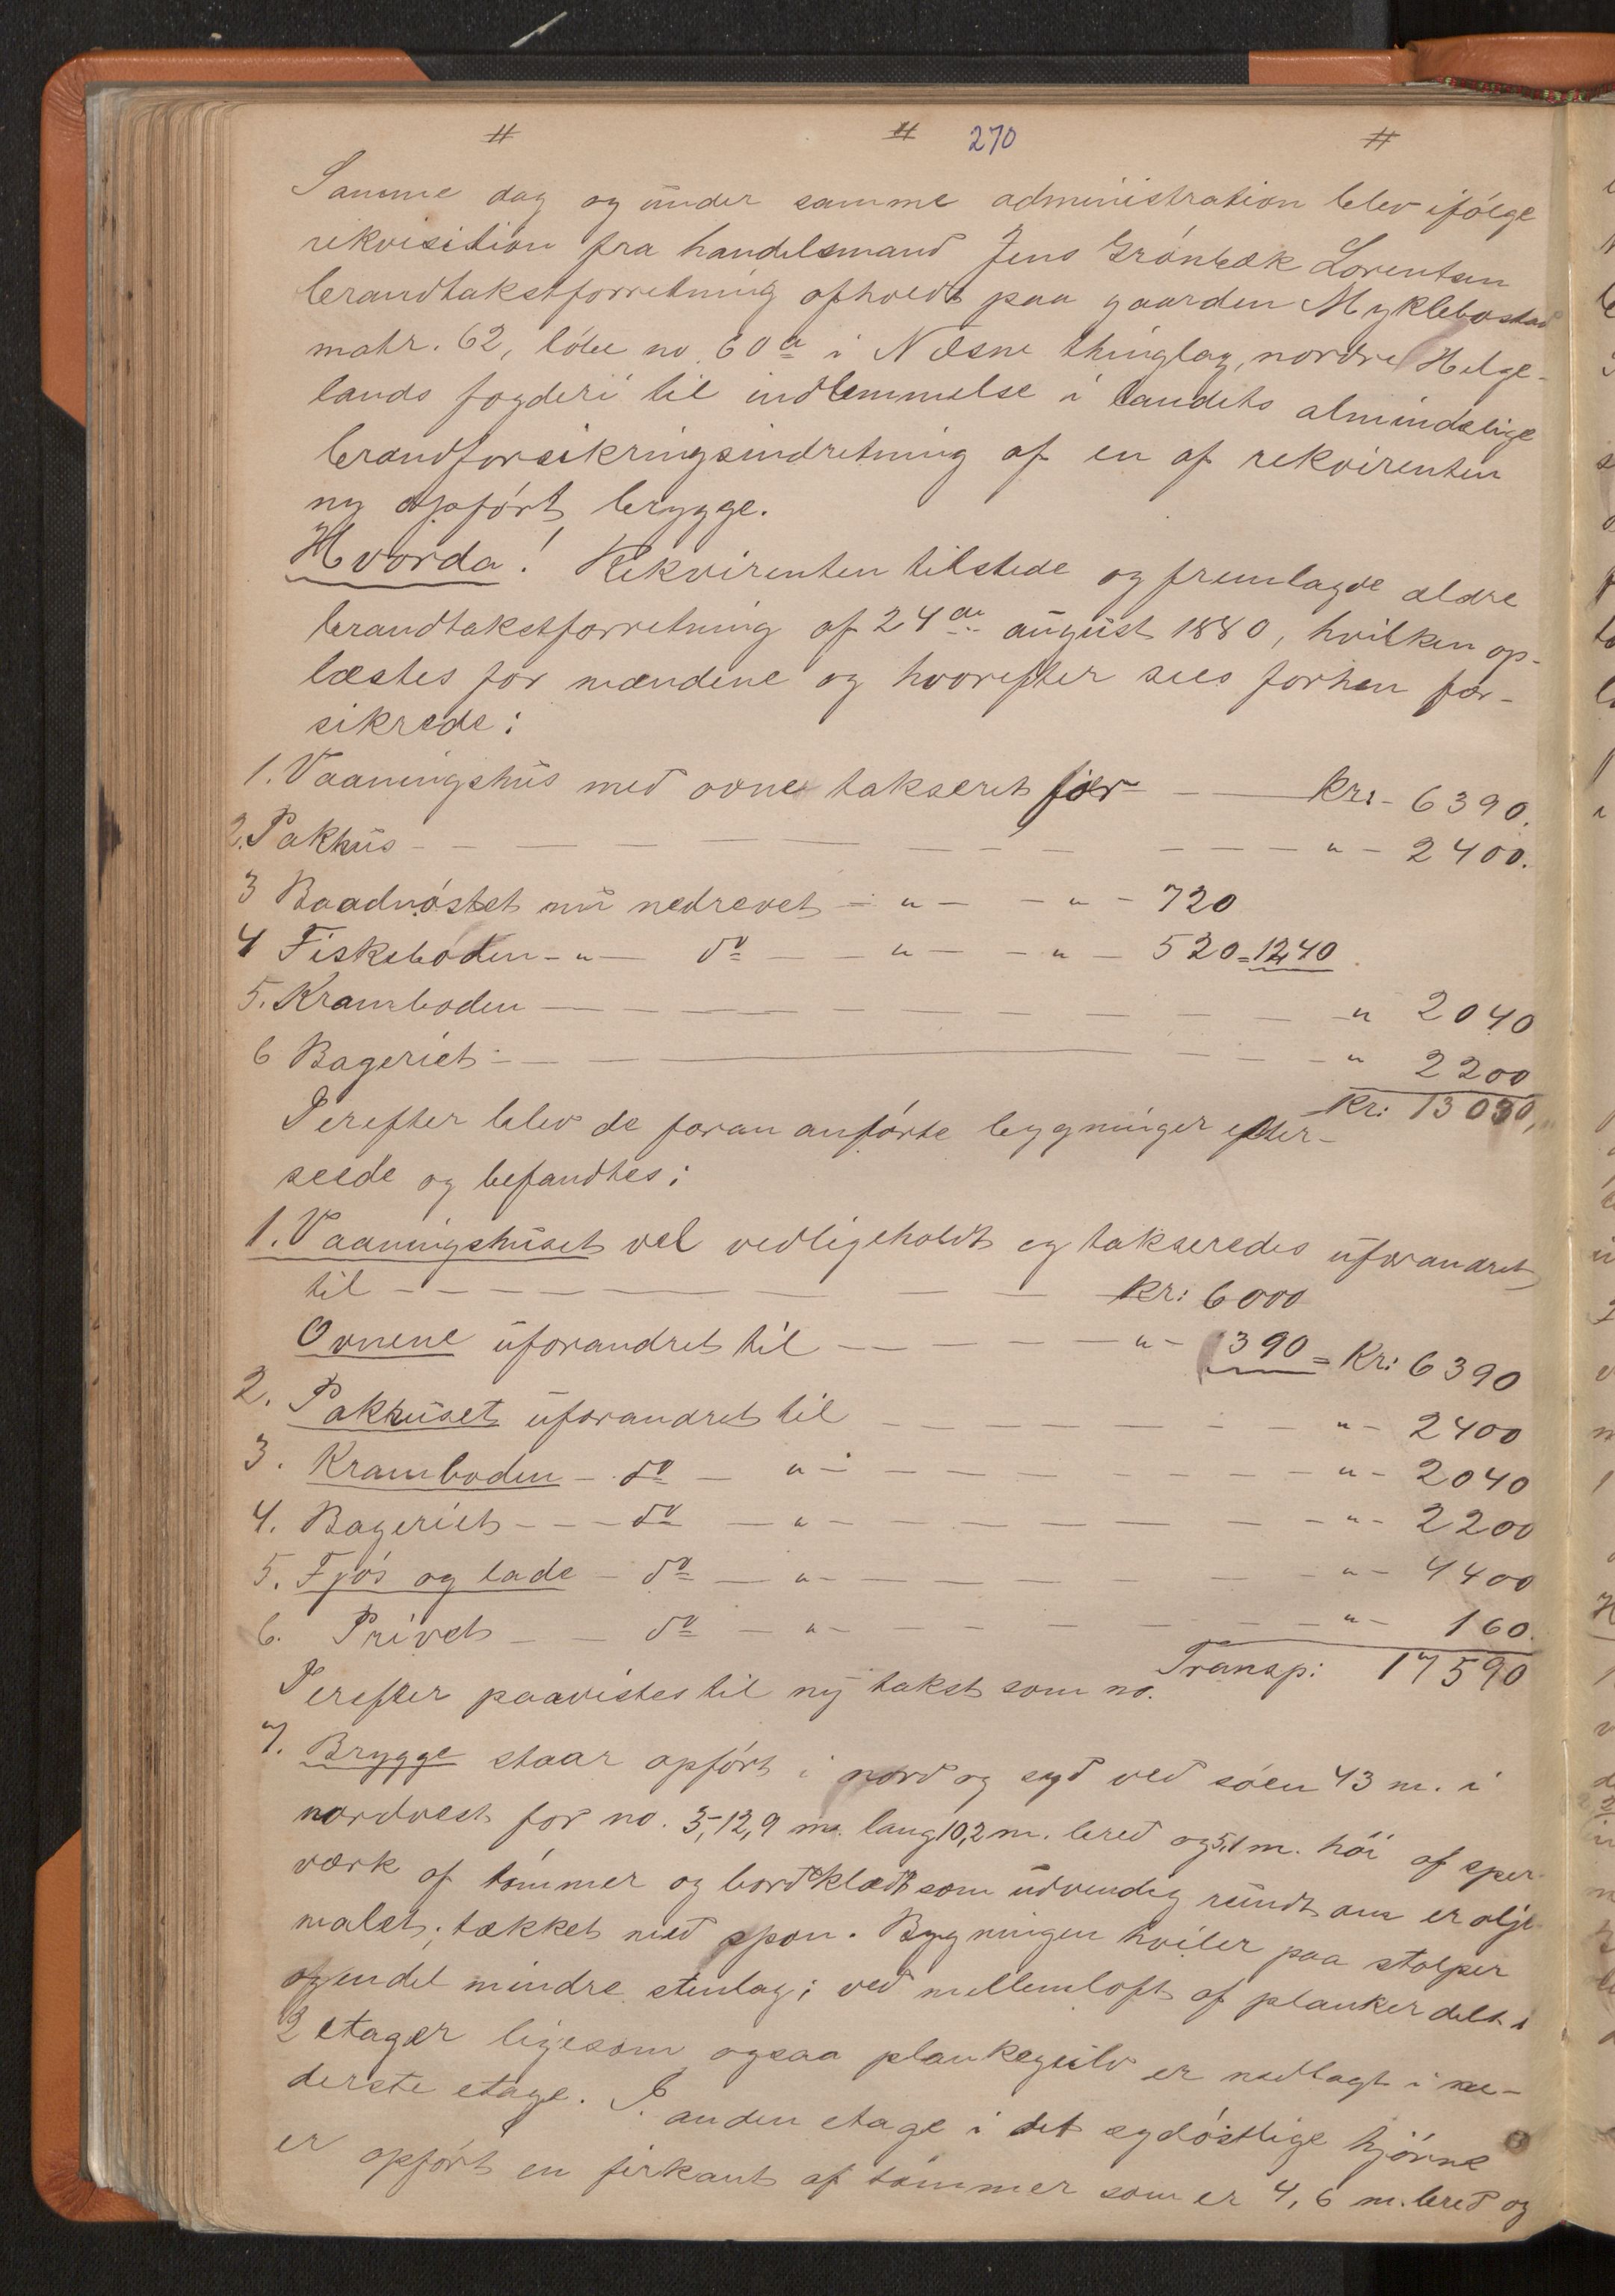 # # 270 #
Samme dag og under samme administration blev ifølge
rekvisition fra handelsmand Jens Grønbæk Lorentsen
brandtakstforretning afholdt paa gaarden Myklebostad
matr. 62, løbe no 60a i Næsne thinglag, nordre Helge-
lands fogderi til indlemmelse i landets almindelige
brandforsikringsindretning af en af rekvirenten
ny opført brygge.
Hvorda! Rekvirenten tilstede og fremlagde ældre
brandtakstforretning af 24de august 1880, hvilken op-
læstes for mændene og hvorefter sees forhen for-
sikrede:
1. Vaaningshus med ovne takseret for — kr: - 6390.
2. Pakhus - — — — — — — — " - 2400.
3 Baadnøstet nu nedrevet - " - - " - 720
4 Fiskeboden - " - do - - " - - " - 520 = 1240
5. Kramboden — — — — — — — " 2040
6 Bageriet - — — — — - " 2200
kr: 13030,
Derefter blev de foran anførte bygninger efter-
seede og befandtes:
1. Vaaningshuset vel vedligeholdt og takseredes uforandret
til — — — — — — — kr: 6000
Ovnene uforandret til — — — — " - 390 = Kr: 6390
2. Pakhuset uforandret til — — — — — " - 2400
3. Kramboden - do - " - — — — — — " - 2040
4. Bageriet - - - do - " - — — — — — " - 2200
5. Fjøs og lade - do - " - — — — — — " - 4400
6. Privet - - do - " - — — — — — " - 160.
Transp: 17590
Derefter paavistes til ny takst som no.
7. Brygge staar opført i nord og syd ved søen 43 m. i
nordvest for no. 5, 12,9 m. lang 10,2 m. bred og 5,1 m. høi af sper-
værk af tømmer og bordklædt som udvendig rundt om er olje
malet; tækket med spon. Bygningen hviler paa stolper
og endel mindre stenlag; ved mellemloft af planker delt i
2 etager ligesom ogsaa plankegulv er nedlagt i ne-
derste etage. I anden etage i det sydøstlige hjørne
er opført en firkant af tømmer som er 4,6 m. bred og